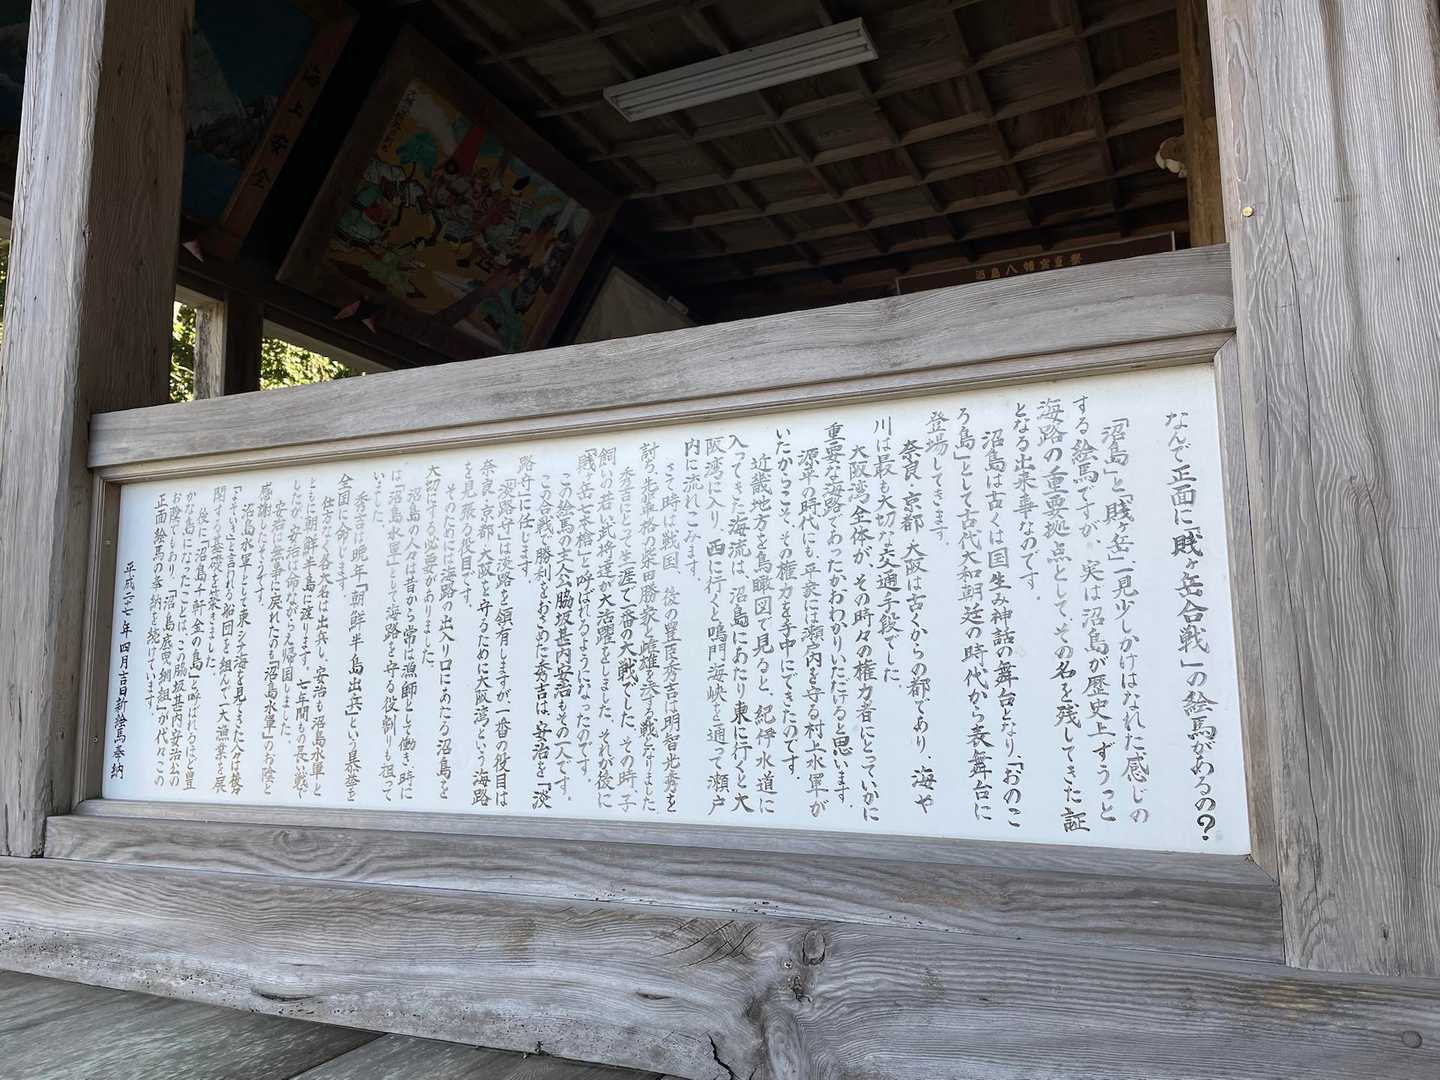 なんで正面に「賎ヶ岳合戦」の絵馬があるの?
「沼島」と「賎ヶ岳」一見少しかけはなれた感じの
する絵馬ですが、実は沼島が歴史上ずうっと
海路の重要拠点として、その名を残してきた証
となる出来事なのです。
沼島は古くは国生み神話の舞台となり、「おのこ
ろ島」として古代大和朝廷の時代から表舞台に
登場してきます。
奈良・京都・大阪は古くからの都であり、海や
川は最も大切な交通手段でした。
大阪湾全体が、その時々の権力者にとっていかに
重要な海路であったかおわかりいただけると思います。
源平の時代にも、平家には瀬戸内を守る村上水軍が
いたからこそ、その権力を手中にできたのです。
近畿地方を鳥瞰図で見ると、紀伊水道に
入ってきた海流は、沼島にあたり東に行くと大
阪湾に入り、西に行くと鳴門海峡を通って瀬戸
内に流れこみます。
さて時は戦国、後の豊臣秀吉は明智光秀を
討ち、先輩格の柴田勝家と雌雄を決する戦となりました。
秀吉にとって生涯で一番の大戦でした。その時、子
飼いの若い武将達が大活躍をしました。それが後に
「賎ヶ岳七本槍」と呼ばれるようになったのです。
この絵馬の主人公脇坂甚内安治もその一人です。
この合戦で勝利をおさめた秀吉は、安治を「淡
路守」に任じます。
「淡路守」は淡路を領有しますが一番の役目は
奈良・京都・大阪を守るために大阪湾という海路
を見張る役目です。
そのためには海路の出入り口にあたる沼島を
大切にする必要がありました。
沼島の人々は昔から常は漁師として働き、時に
は「沼島水軍」として海路を守る役割りも担って
いました。
秀吉は晩年「朝鮮半島出兵」という暴挙を
全国に命じます。
仕方なく各大名は出兵し、安治も沼島水軍と
ともに朝鮮半島に渡ります。七年間もの長い戦や
したが、安治は命からがら帰国しました。
安治は無事に戻れたのも「沼島水軍」のお陰と
感謝したそうです。
沼島水軍として東シナ海を見てきた人々は後々
「よそい」と言われる船団を組んで一大漁業を展
開する基礎を築きました。
後に「沼島千軒金の島」と呼ばれるほど豊
かな島になったことは、この脇坂甚内安治公の
お陰でもあり、「沼島底曳網組」が代々この
正面絵馬の奉納を続けています。
平成二十七年四月吉日新絵馬奉納
海上安全
沼島八幡宮重祭